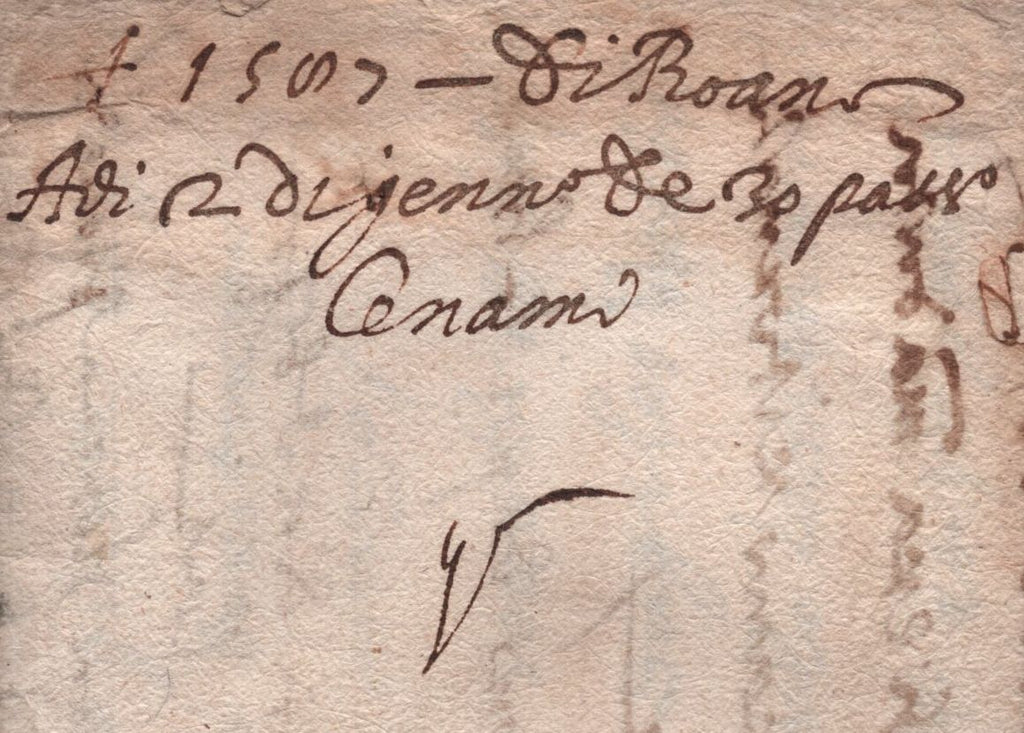 † 1587 – Di Roano
Adi 2 di jenn.º De 30 pass.º
Cenami